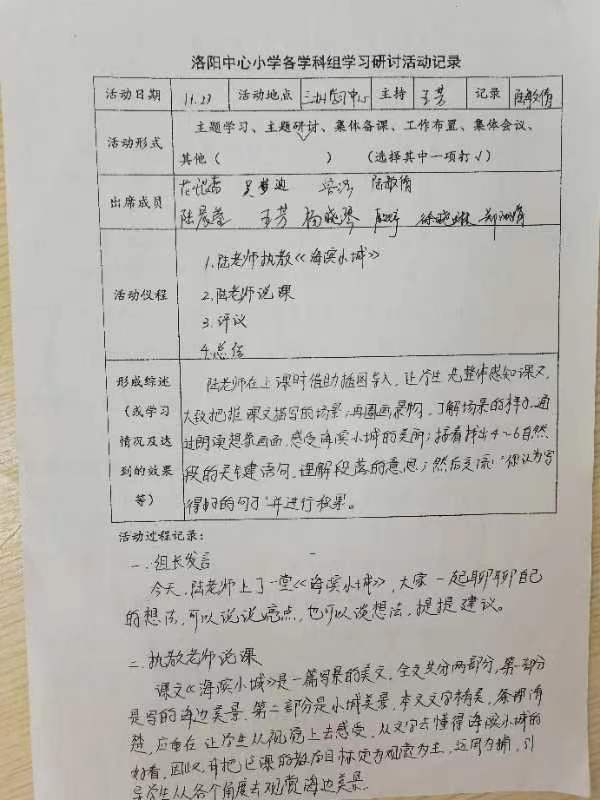 洛阳中心小学各学科组学习研讨活动记录
活动日期 11.23 活动地点 主持 王芳 记录 陆敏倩
活动形式 主题学习、主题研讨、集体备课、工作布置、集体会议、
其他（ ） （选择其中一项打√）
出席成员 吴梦迪 陆敏倩
陆晨莹 王芳 杨晓琴
活动仪程
1.陆老师执教《海滨小城》
2.陆老师说课
3.评议
4.总结
形成综述（或学习情况及达到的效果等）
陆老师在上课时借助插图导入，让学生先整体感知课文，
大致把握课文描写的场景；再圈画景物，了解场景的样子，通
过朗读想象画面，感受海滨小城的美丽；接着找出4~6自然
段的关键语句，理解段落的意思；然后交流“你认为写
得好的句子”并进行积累。
活动过程记录：
一.组长发言
今天，陆老师上了一堂《海滨小城》，大家一起聊聊自己
的想法，可以说说亮点，也可以谈想法，提提建议。
二.执教老师说课
课文《海滨小城》是一篇写景的美文，全文共分两部分，第一部分
是写的海边美景，第二部分是小城美景，本文文字精美，条理清
楚，应重在让学生从视觉上去感受，从文字去懂得海滨小城的
好看，因此，我把这课的教学目标定为观赏为主，运用为辅，引
导学生从各个角度去观赏海边美景.